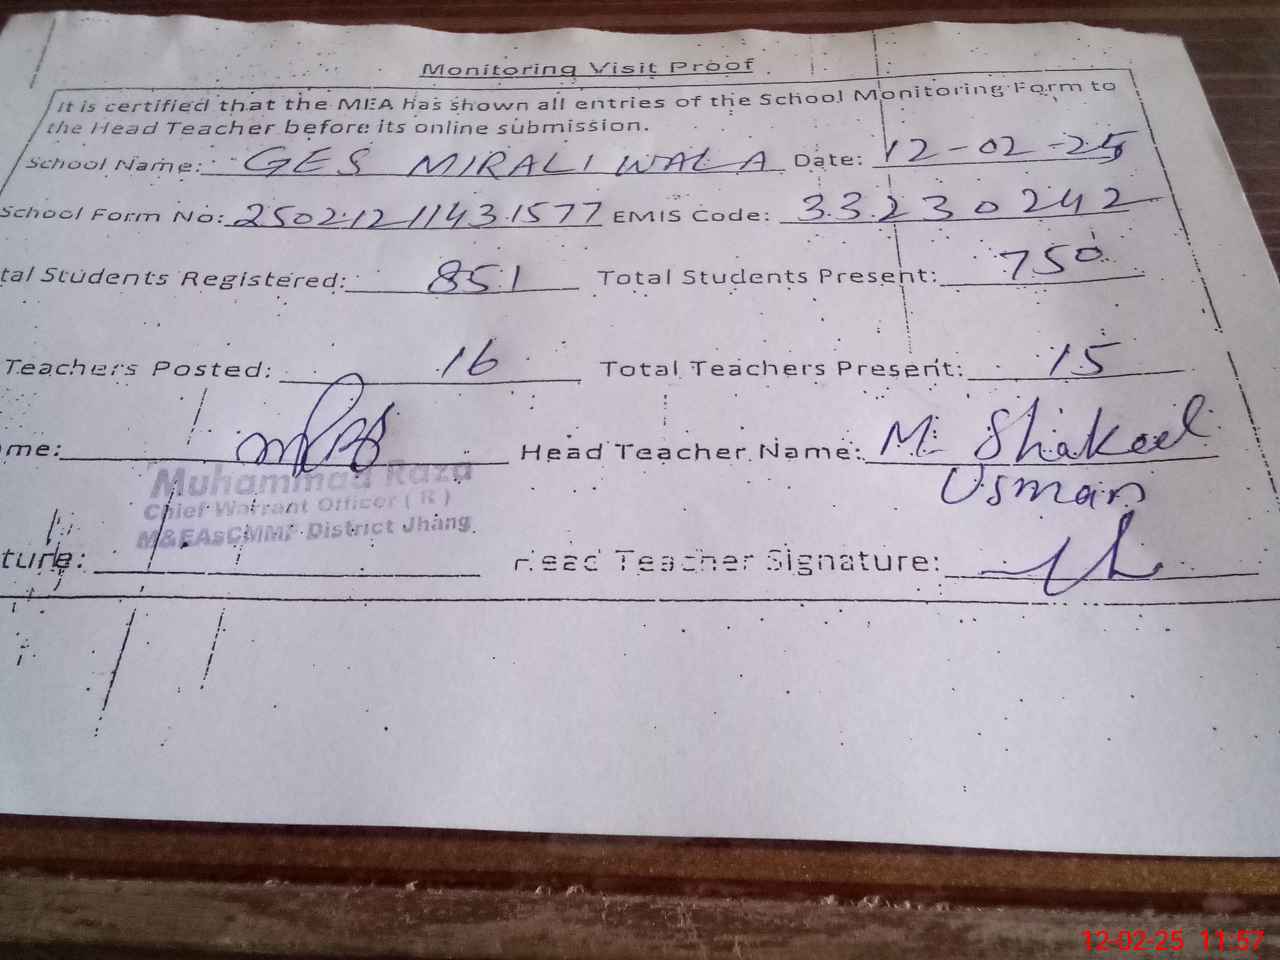 Monitoring Visit Proof
It is certified that the MEA has shown all entries of the School Monitoring Form to
the Head Teacher before its online submission.
School Name: GES MIRALI WALA Date: 12-02-25
School Form No: 25021211431577 EMIS Code: 33230242
tal Students Registered: 851 Total Students Present: 750
Teachers Posted: 16 Total Teachers Present: 15
me: Head Teacher Name: M. Shakeel
Usman
Muhammad Raza
Chief Warrant Officer ( R )
M&EAsCMMF District Jhang
ture: Head Teacher Signature:
12-02-25 11:57